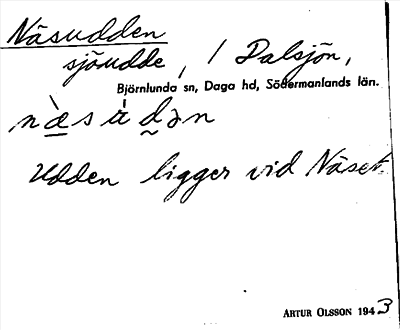 Näsudden
sjöudde, i Dalsjön,
Björnlunda sn, Daga hd, Södermanlands län.
Udden ligger vid Näset.
ARTUR OLSSON 1943